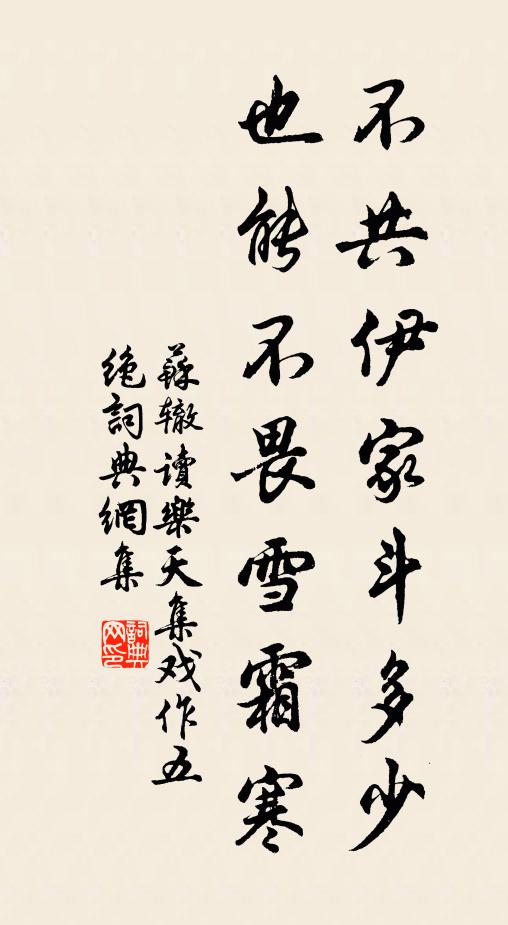 不共伊家斗多少
也能不畏雪霜寒
蘇辙读樂天集戏作五
绝詞典網集
詞典
网印